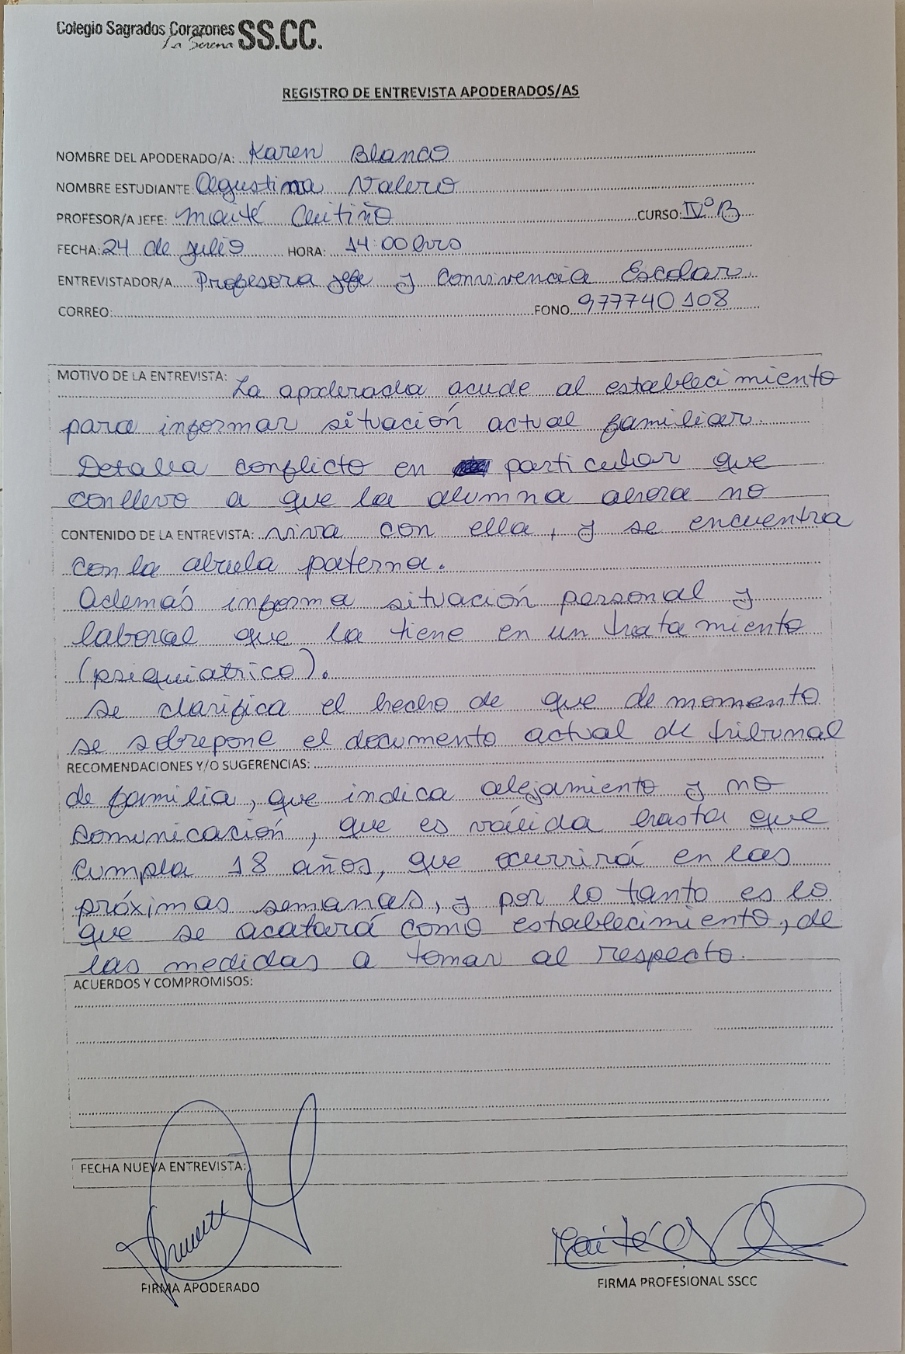 Colegio Sagrados Corazones SS.CC.
La Serena
REGISTRO DE ENTREVISTA APODERADOS/AS
NOMBRE DEL APODERADO/A: Karen Blanco
NOMBRE ESTUDIANTE: Agustina Valero
PROFESOR/A JEFE: Maité Ceitiño CURSO: IVºB
FECHA: 24 de julio HORA: 14:00 hrs
ENTREVISTADOR/A Profesora jefe y Convivencia Escolar
CORREO: FONO 977740108
MOTIVO DE LA ENTREVISTA: La apoderada acude al establecimiento
para informar situación actual familiar.
Detalla conflicto en particular que
conllevo a que la alumna ahora no
CONTENIDO DE LA ENTREVISTA: viva con ella, y se encuentra
con la abuela paterna.
Además informa situación personal y
laboral que la tiene en un tratamiento
(psiquiatrico).
Se clarifica el hecho de que de momento
se sobrepone el documento actual de tribunal
RECOMENDACIONES Y/O SUGERENCIAS:
de familia, que indica alejamiento y no
comunicación, que es válida hasta que
cumpla 18 años, que ocurrirá en las
próximas semanas, y por lo tanto es lo
que se acatará como establecimiento, de
las medidas a tomar al respecto.
ACUERDOS Y COMPROMISOS:
FECHA NUEVA ENTREVISTA:
FIRMA APODERADO
FIRMA PROFESIONAL SSCC